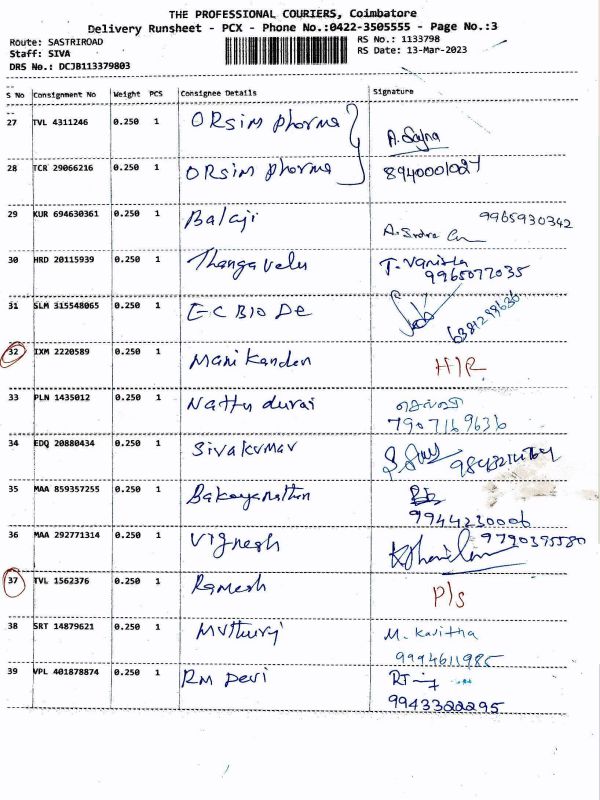 THE PROFESSIONAL COURIERS, Coimbatore
Delivery Runsheet - PCX - Phone No.:0422-3505555 - Page No.:3
Route: SASTRIROAD RS No.: 1133798
Staff: SIVA RS Date: 13-Mar-2023
DRS No.: DCJB113379803
S No Consignment No Weight PCS Consignee Details Signature
27 TVL 4311246 0.250 1 ORSim pharma A. Sajna
28 TCR 29066216 0.250 1 ORSim pharma 8940001027
29 KUR 694630361 0.250 1 Balaji 9965930342
30 HRD 20115939 0.250 1 Thangavelu T. Vanitha
9965077035
31 SLM 315548065 0.250 1 E-C BIO De
32 IXM 2220589 0.250 1 Mani kanden H/R
33 PLN 1435012 0.250 1 Nattu durai செல்வி
7907169636
34 EDQ 20880434 0.250 1 Sivakumar
35 MAA 859357255 0.250 1
9944230006
36 MAA 292771314 0.250 1 Vignesh 9790395580
37 TVL 1562376 0.250 1 Ramesh P/s
38 SRT 14879621 0.250 1 Muthuraj M. Kavitha
9994611985
39 VPL 401878874 0.250 1 RM Devi
9943322295